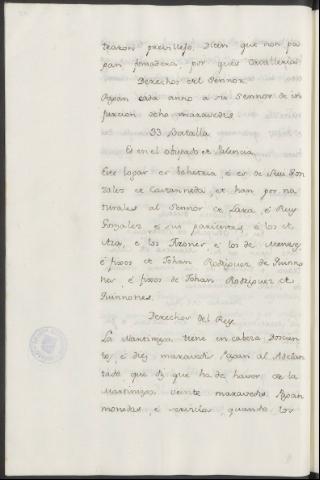 traron previllejo, dicen que non pa
gan fonsadera, por ques Cavallerias
Derechos del Sennor
Pagan cada anno a su Sennor de in
furcion ocho maravedis
33 Batalla
Es en el obispado de Palencia
Este logar es behetria, é es de Ruy Gon
zales de Castanneda, et han por na
turales al Sennor de Lara, é Ruy
Gonzales, é sus parientes, é los de
Aza, é los Girones é los de Meneses,
é fixos de Johan Rodriguez de Quinno
nes, é fixos de Johan Rodriguez de
Quinnones.
Derechos del Rey
La Martiniega tiene en cabeza Docien
tos, é diez maravedis Pagan al Adelan
tado que que ha de haver de la
Martiniega veinte maravedis. Pagan
monedas, é servicios, quando los